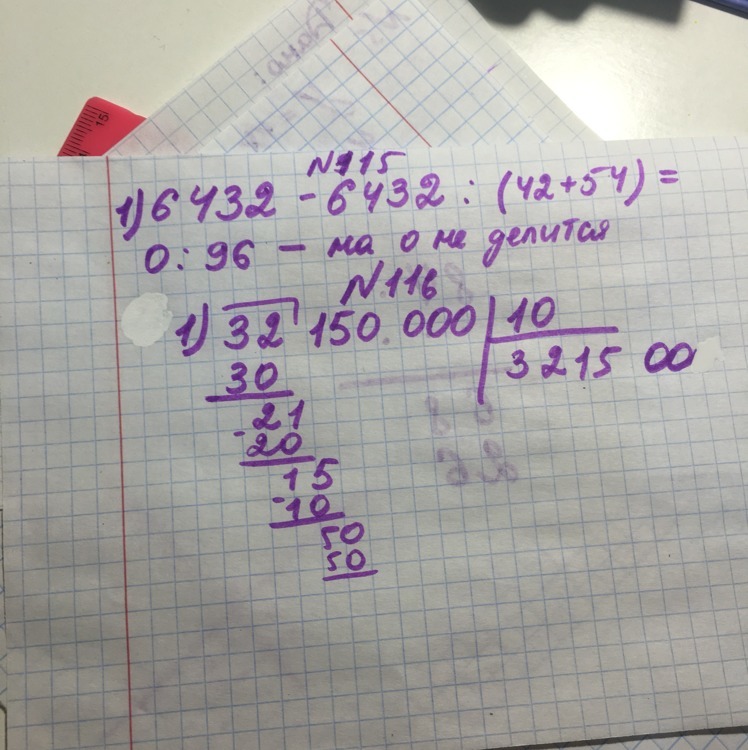 N115
1) 6432 - 6432 : (42+54) =
0 : 96 — на 0 не делится
N116
1) 32 150 000 | 10
30
3215 00
- 21
20
15
- 10
50
50
15